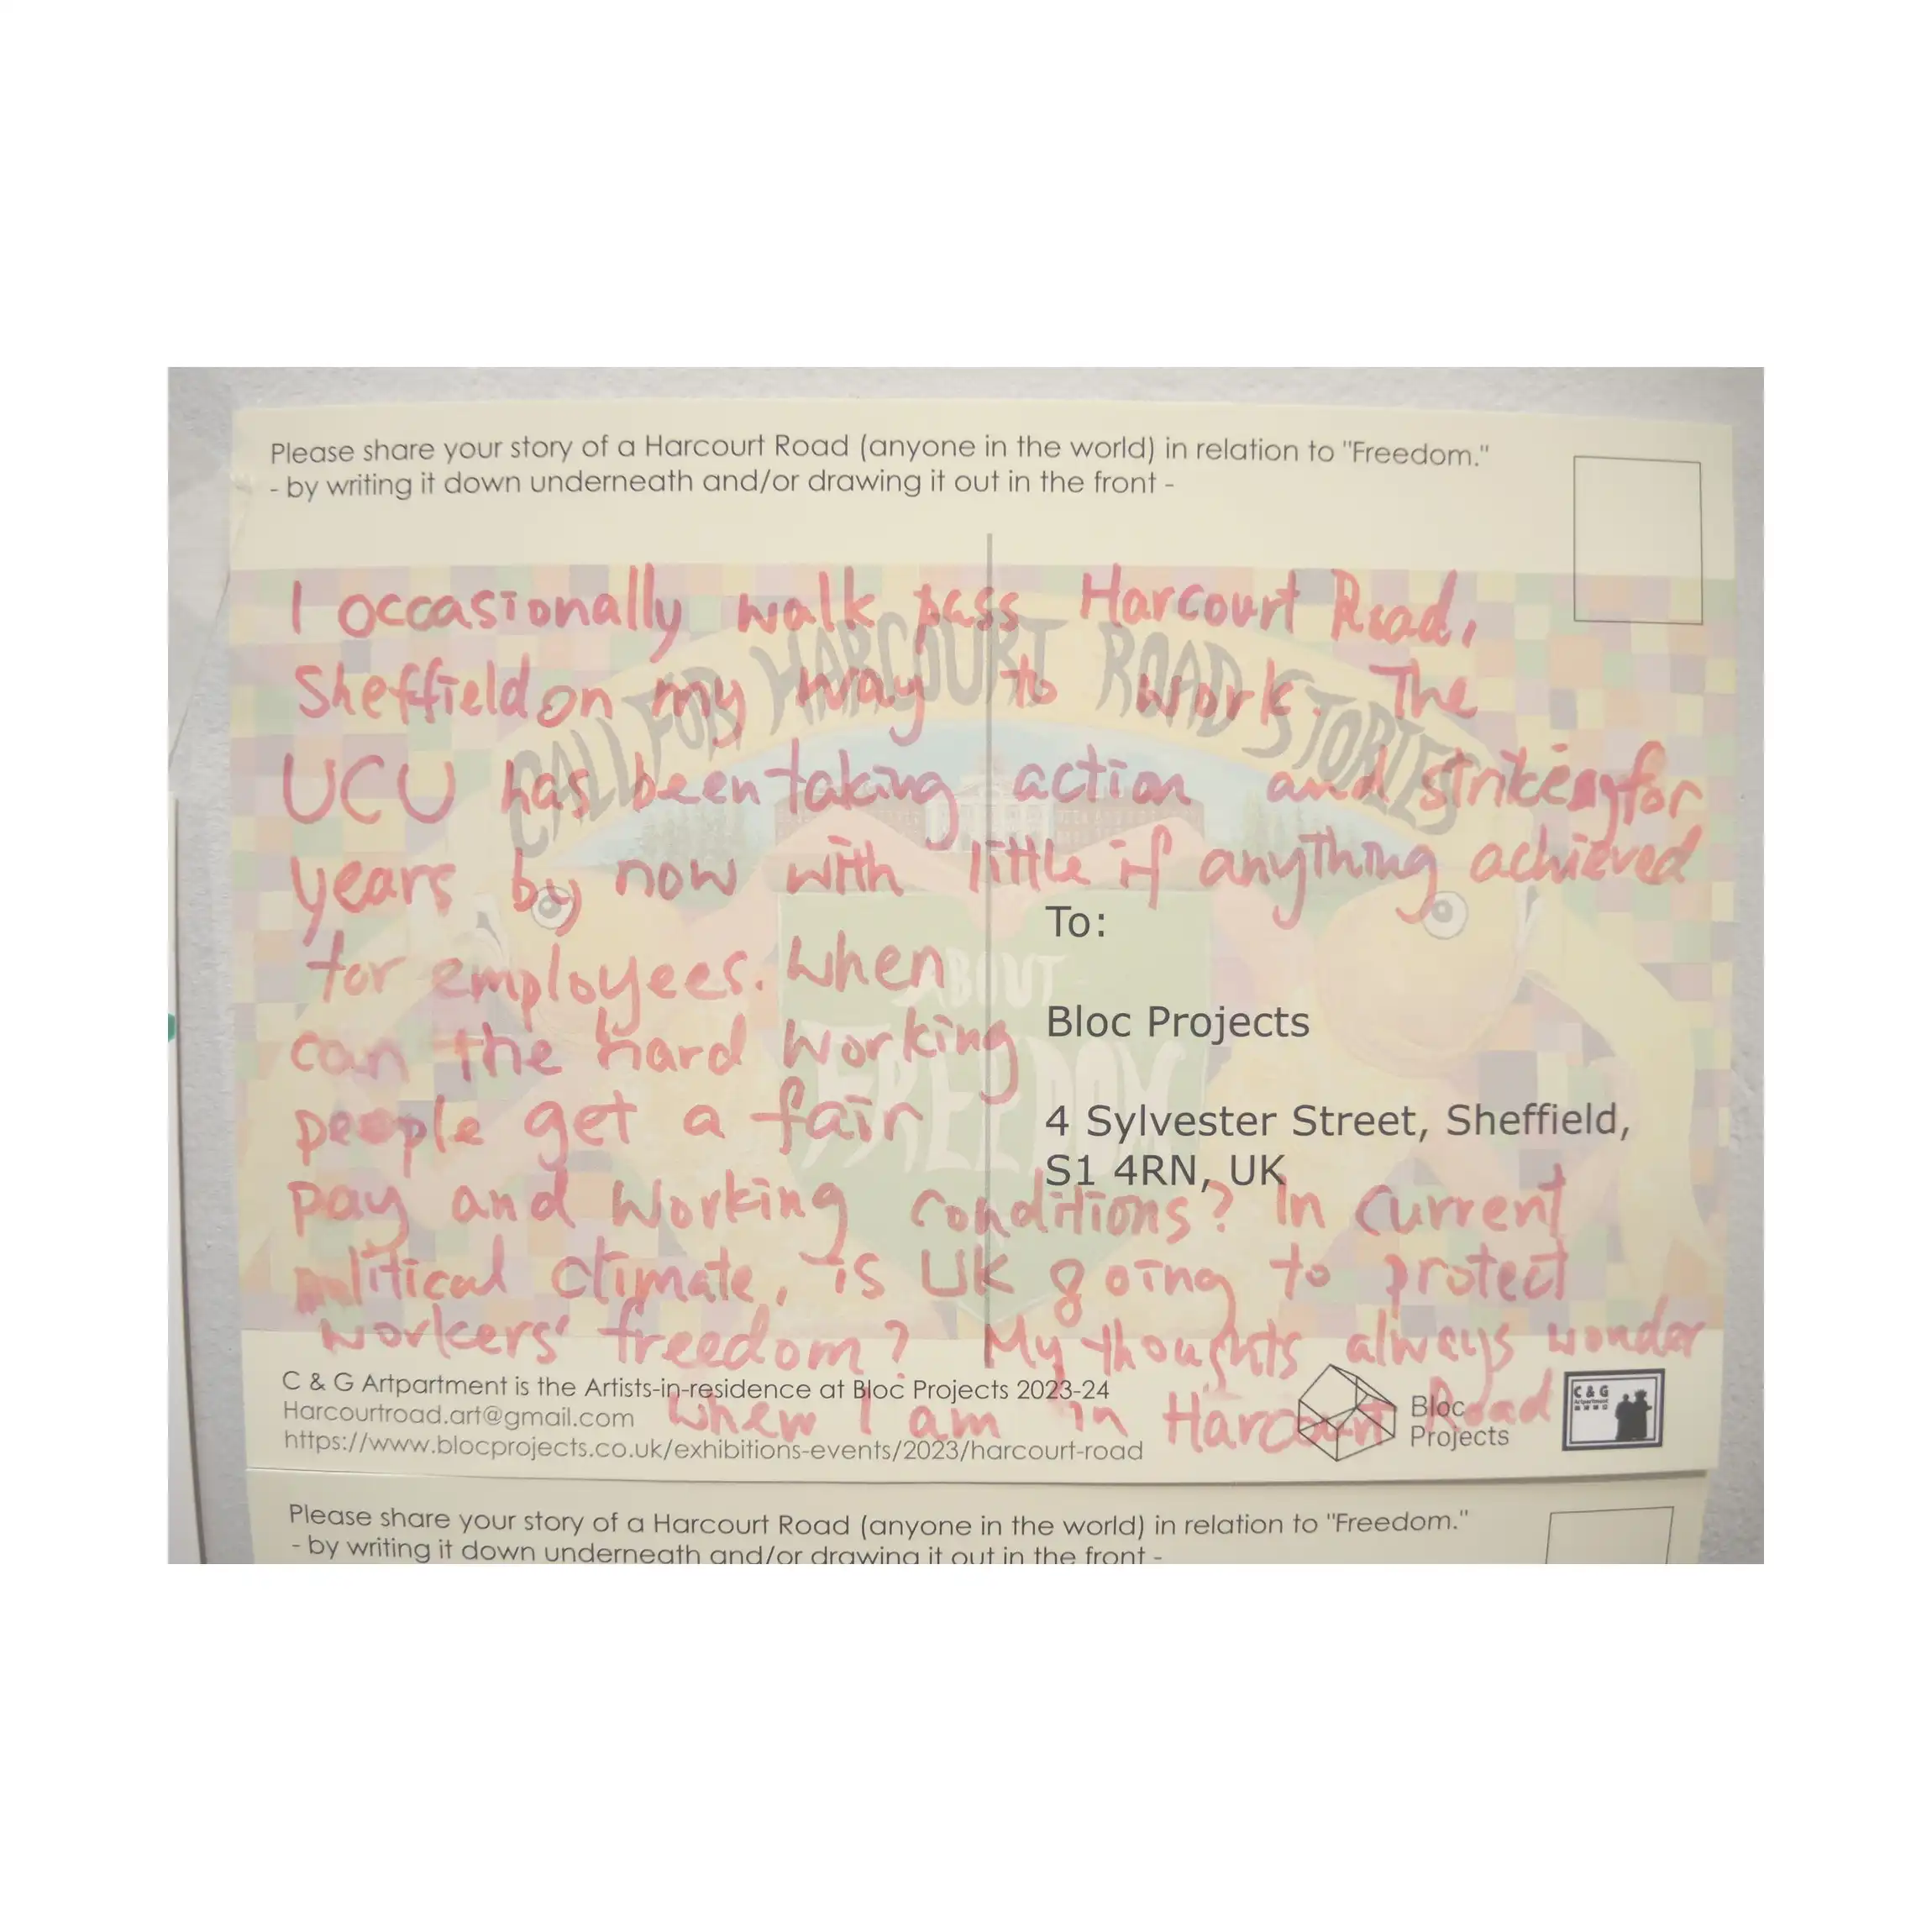 Please share your story of a Harcourt Road (anyone in the world) in relation to "Freedom."
- by writing it down underneath and/or drawing it out in the front -
I occasionally walk pass Harcourt Road,
Sheffield on my way to work. The
UCU has been taking action and striking for
years by now with little if anything achieved
for employees. When
can the hard working
people get a fair
pay and working conditions? In current
political climate, is UK going to protect
workers' freedom? My thoughts always wonder
when I am in Harcourt Road
CALL FOR HARCOURT ROAD STORIES
ABOUT
FREEDOM
To:
Bloc Projects
4 Sylvester Street, Sheffield,
S1 4RN, UK
C & G Artpartment is the Artists-in-residence at Bloc Projects 2023-24
Harcourtroad.art@gmail.com
https://www.blocprojects.co.uk/exhibitions-events/2023/harcourt-road
Bloc
Projects
C & G
Artpartment
Please share your story of a Harcourt Road (anyone in the world) in relation to "Freedom."
- by writing it down underneath and/or drawing it out in the front -